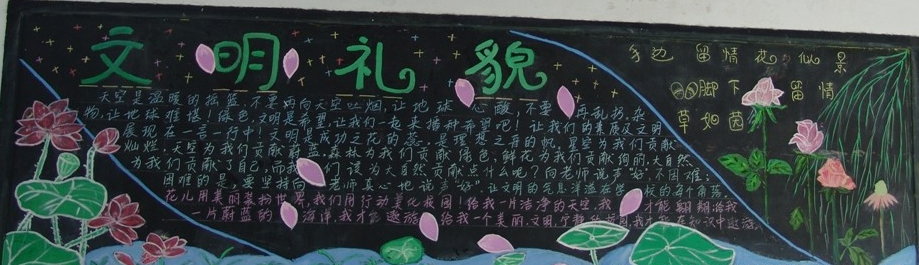 文明礼貌
天空是温暖的摇篮,不要再向天空吐烟,让地球心酸,不要再乱扔杂
物,让地球难堪!绿色,文明是希望,让我们一起来播种希望吧!让我们的素质及文明
展现在一言一行中!文明是成功之花的蕊,是理想之舟的帆,星空为我们
灿烂,天空为我们贡献蔚蓝,森林为我们贡献绿色,鲜花为我们贡献绚丽,大自然
为我们贡献了自己,而我们该为大自然贡献点什么呢?向老师说声"好",不困难;
困难的是,要坚持向老师真心地说声"好",让文明的气息洋溢在学校的每个角落。
花儿用美丽装扮世界,我们用行动美化校园!给我一片洁净的天空,我才能翱翔游戏
一片蔚蓝的海洋,我才能遨游,给我一个美丽,文明,宁静的校园,我才能在知识中遨游。
多边留情花似景
脚下留情
草如茵